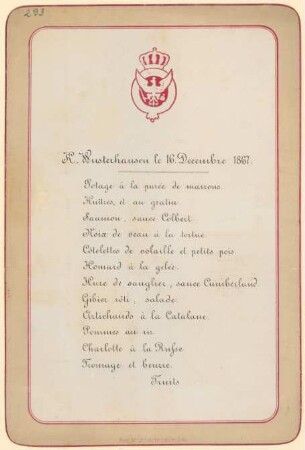 293
K. Wusterhausen le 16. Decembre 1867.
Potage à la purée de marrons.
Huîtres, et au gratin
Saumon, sauce Colbert
Noix de veau à la tortue
Côtelettes de volaille et petits pois
Homard à la gelée
Hure de sanglier, sauce Cumberland
Gibier rôti, salade
Artichauds à la Catalane.
Pommes au riz.
Charlotte à la Russe
Fromage et beurre.
Fruits